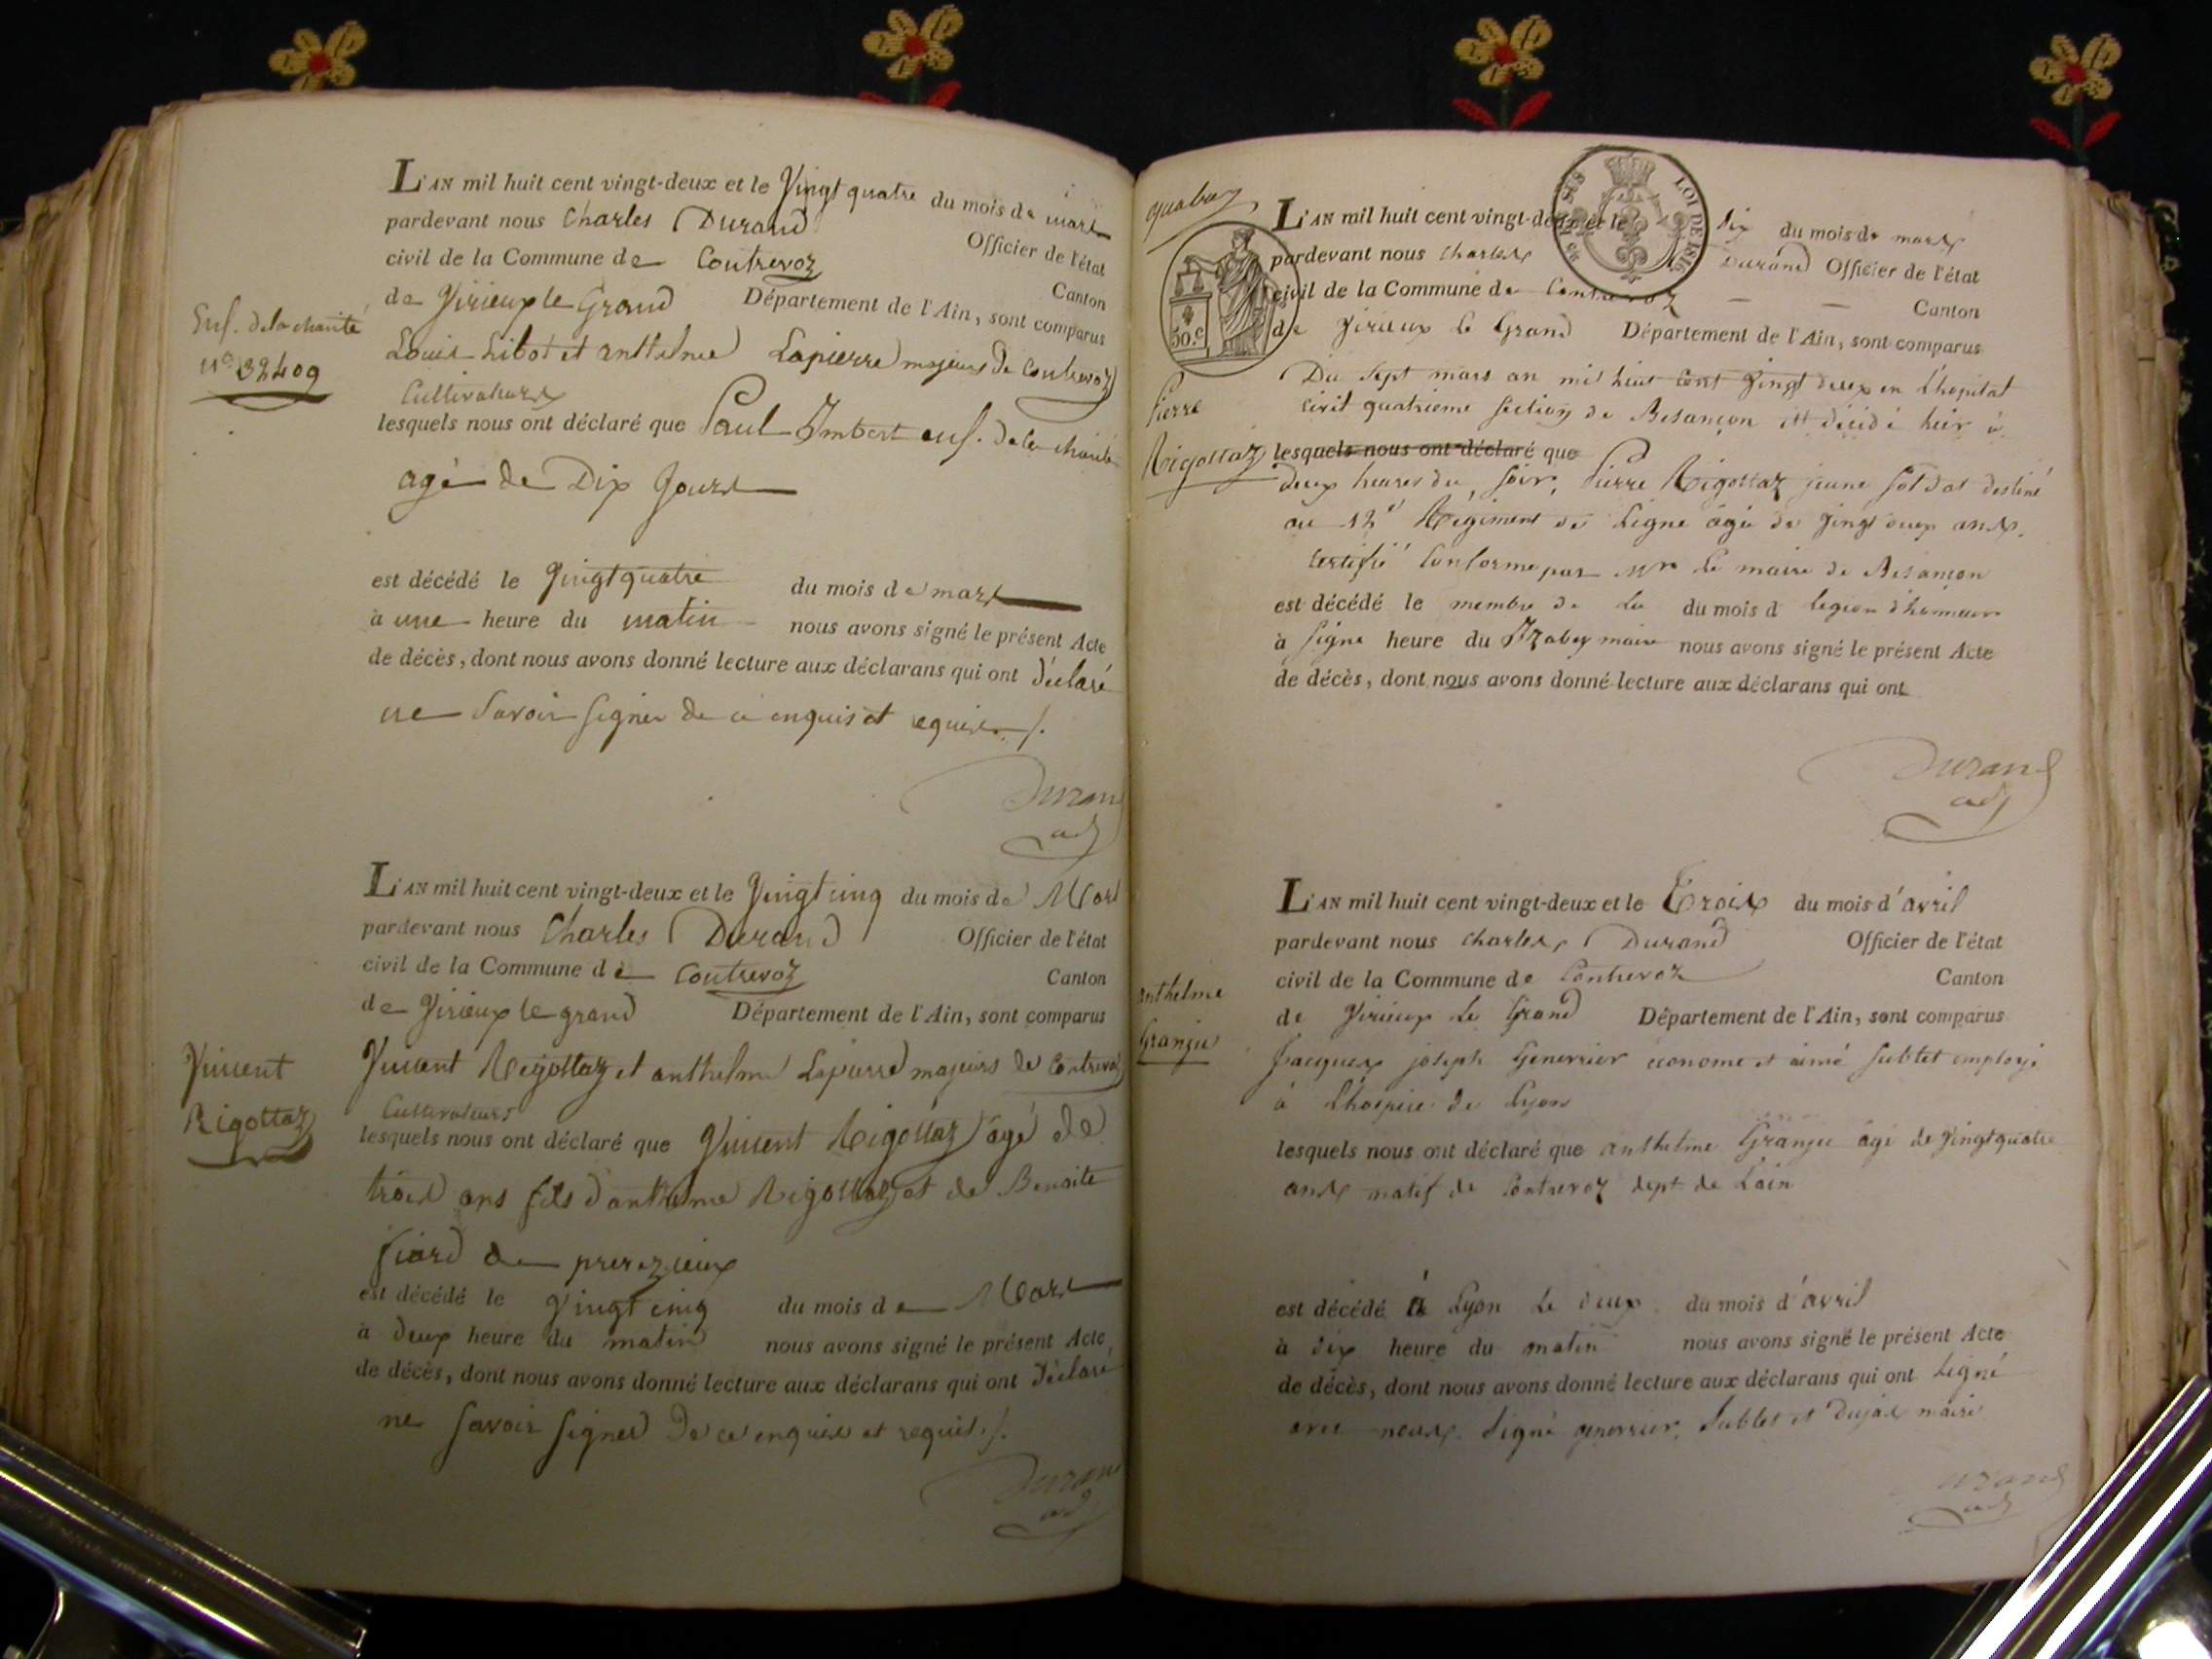 L'AN mil huit cent vingt-deux et le Vingt quatre du mois de mars
pardevant nous Charles Durand Officier de l'état
civil de la Commune de Contrevoz Canton
de Virieux le Grand Département de l'Ain, sont comparus
Enf. de la charité
N° 32409
Louis Libot et anthelme Lapierre majeurs de Contrevoz
Cultivateurs
lesquels nous ont déclaré que Paul Imbert enf. de la charité
agé de Dix Jours
est décédé le Vingt quatre du mois de mars
à une heure du matin nous avons signé le présent Acte
de décès, dont nous avons donné lecture aux déclarans qui ont déclaré
ne Savoir signer de ce enquis et requis ./.
Durand
adj
L'AN mil huit cent vingt-deux et le Vingt cinq du mois de Mars
pardevant nous Charles Durand Officier de l'état
civil de la Commune de Contrevoz Canton
de Virieux le grand Département de l'Ain, sont comparus
Vincent
Rigottaz
Vincent Rigottaz et anthelme Lapierre majeurs de Contrevoz
Cultivateurs
lesquels nous ont déclaré que Vincent Rigottaz agé de
trois ans fils d'anthelme Rigottaz et de Benoite
fiard de preveyzieux
est décédé le Vingt cinq du mois de Mars
à deux heure du matin nous avons signé le présent Acte,
de décès, dont nous avons donné lecture aux déclarans qui ont déclaré
ne Savoir signer de ce enquis et requis ./.
Durand
adj
LOI DE 1816
50.C
L'AN mil huit cent vingt-deux et le dix du mois de mars
pardevant nous Charles Durand Officier de l'état
civil de la Commune de Contrevoz Canton
de Virieux Le Grand Département de l'Ain, sont comparus
Pierre
Rigottaz
Du Sept mars an mil huit cent vingt deux en l'hopital
civil quatrieme Section de Besançon est décédé hier à
lesquels nous ont déclaré que
deux heures du soir, Pierre Rigottaz jeune Soldat destiné
au 12e Régiment de Ligne âgé de vingt deux ans.
Certifié Conforme par Mr Le maire de Besançon
est décédé le membre de La du mois d légion d'honneur
à signé heure du maire nous avons signé le présent Acte
de décès, dont nous avons donné lecture aux déclarans qui ont
Durand
adj
L'AN mil huit cent vingt-deux et le Trois du mois d'avril
pardevant nous Charles Durand Officier de l'état
civil de la Commune de Contrevoz Canton
de Virieux Le Grand Département de l'Ain, sont comparus
anthelme
Granju
Jacques joseph Genevrier econome et aimé Sublet employé
à L'hospice de Lyon
lesquels nous ont déclaré que anthelme Granju âgé de vingt quatre
ans natif de Contrevoz dept de L'ain
est décédé à Lyon Le deux du mois d'avril
à dix heure du matin nous avons signé le présent Acte
de décès, dont nous avons donné lecture aux déclarans qui ont signé
avec nous. Signé genevrier, Sublet et Dujas maire
Durand
adj